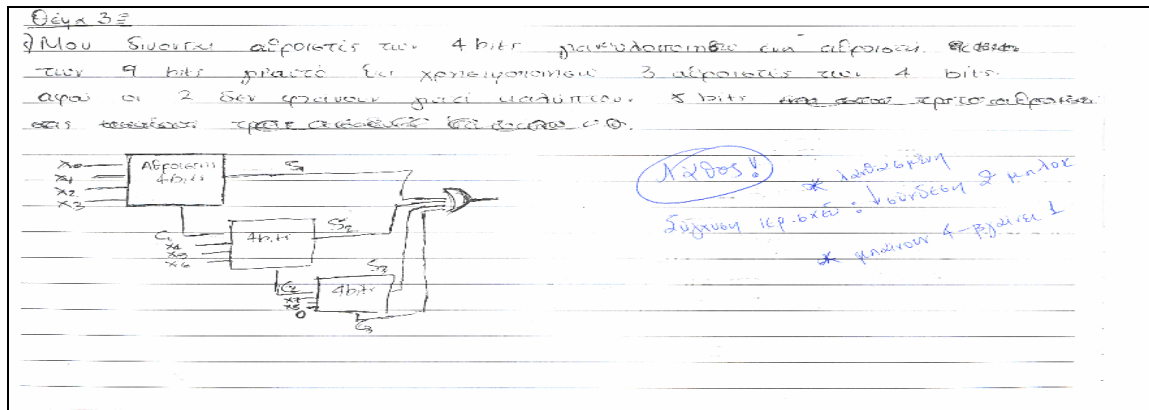 Θέμα 3ο
γ) Μου δίνονται αθροιστές των 4 bits για να υλοποιήσω ένα αθροιστή
των 9 bits γι' αυτό θα χρησιμοποιήσω 3 αθροιστές των 4 bits.
αφού οι 2 δεν φτάνουν γιατί καλύπτουν 8 bits τρίτο
X0
X1
X2
X3
Αθροιστής
4bits
S1
C1
X4
X5
X6
4bits
S2
C2
X7
X8
0
4bits
S3
C3
Λάθος!
* λανθασμένη
σύνδεση 2 μπλοκ
Σύγχυση ιερ. σχεδ:
* μπαίνουν 4 - βγαίνει 1